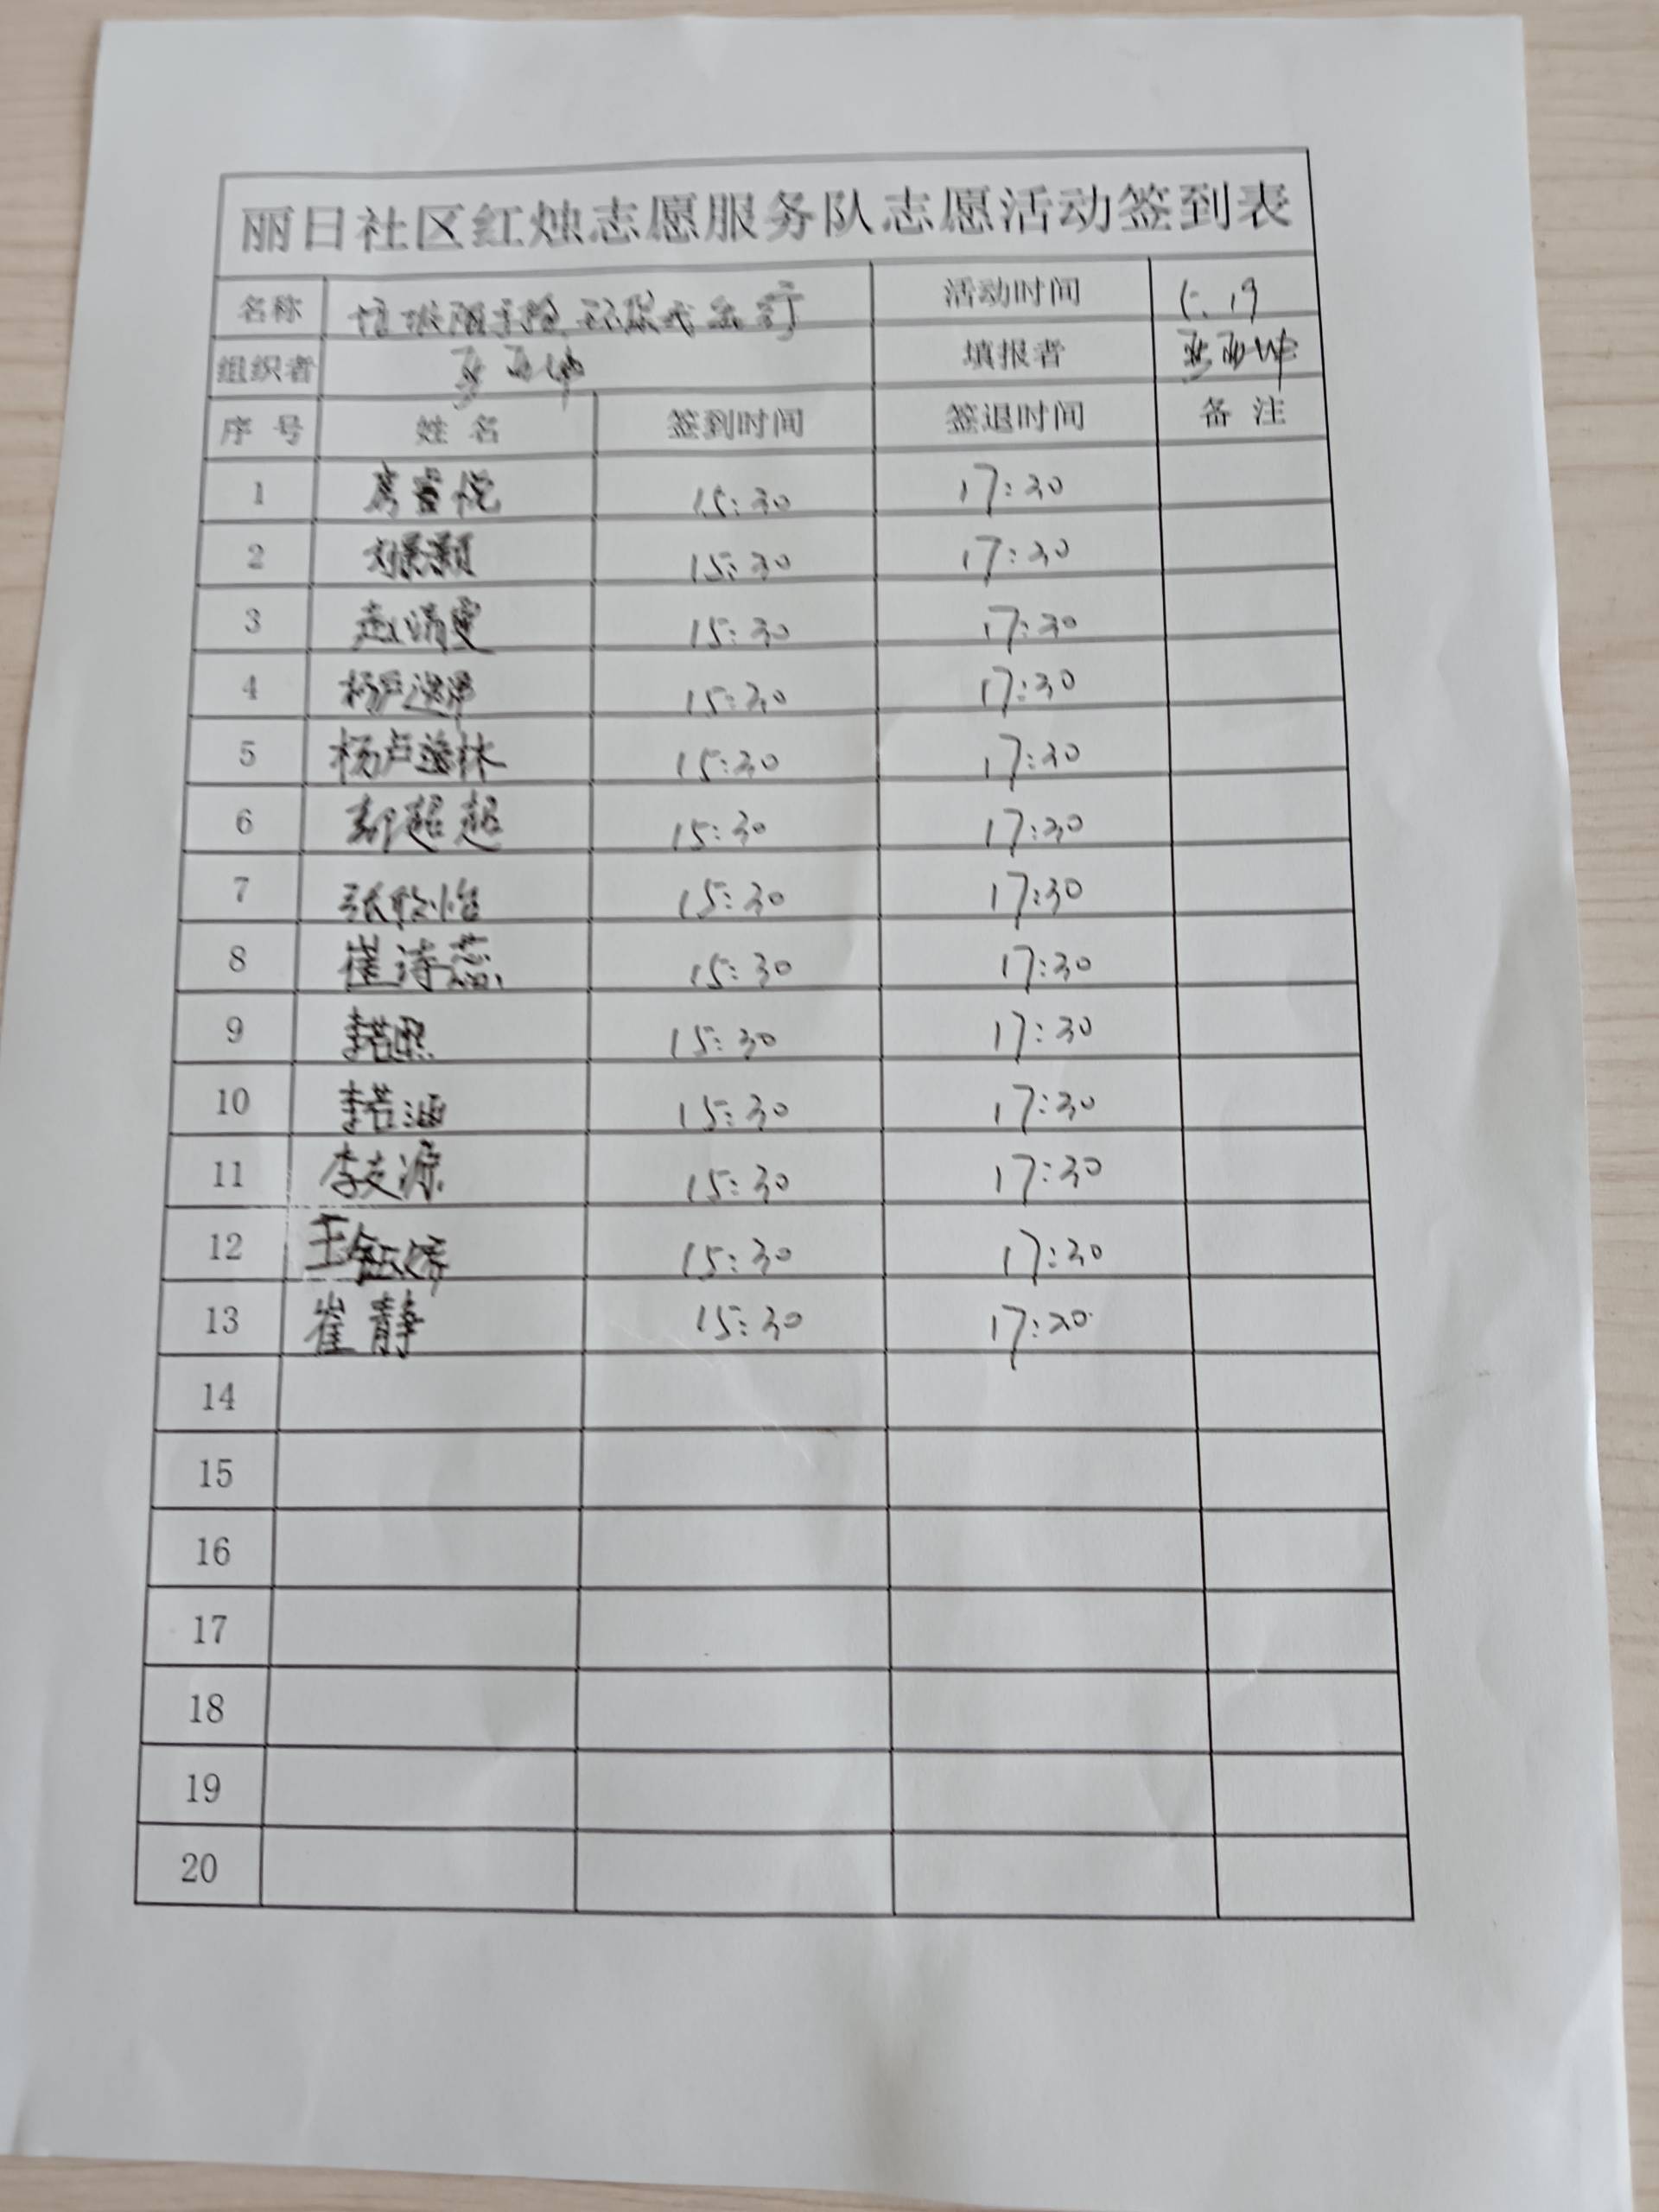 丽日社区红烛志愿服务队志愿活动签到表
名称 垃圾随手捡 环保我先行 活动时间
组织者 填报者
序号 姓名 签到时间 签退时间 备注
1 房睿悦 15:30 17:30
2 刘景颢 15:30 17:30
3 赵清雯 15:30 17:30
4 杨卢 15:30 17:30
5 杨卢逸林 15:30 17:30
6 郭超超 15:30 17:30
7 15:30 17:30
8 崔诗蕊 15:30 17:30
9 李若熙 15:30 17:30
10 李若涵 15:30 17:30
11 李友源 15:30 17:30
12 王钰婷 15:30 17:30
13 崔静 15:30 17:30
14
15
16
17
18
19
20